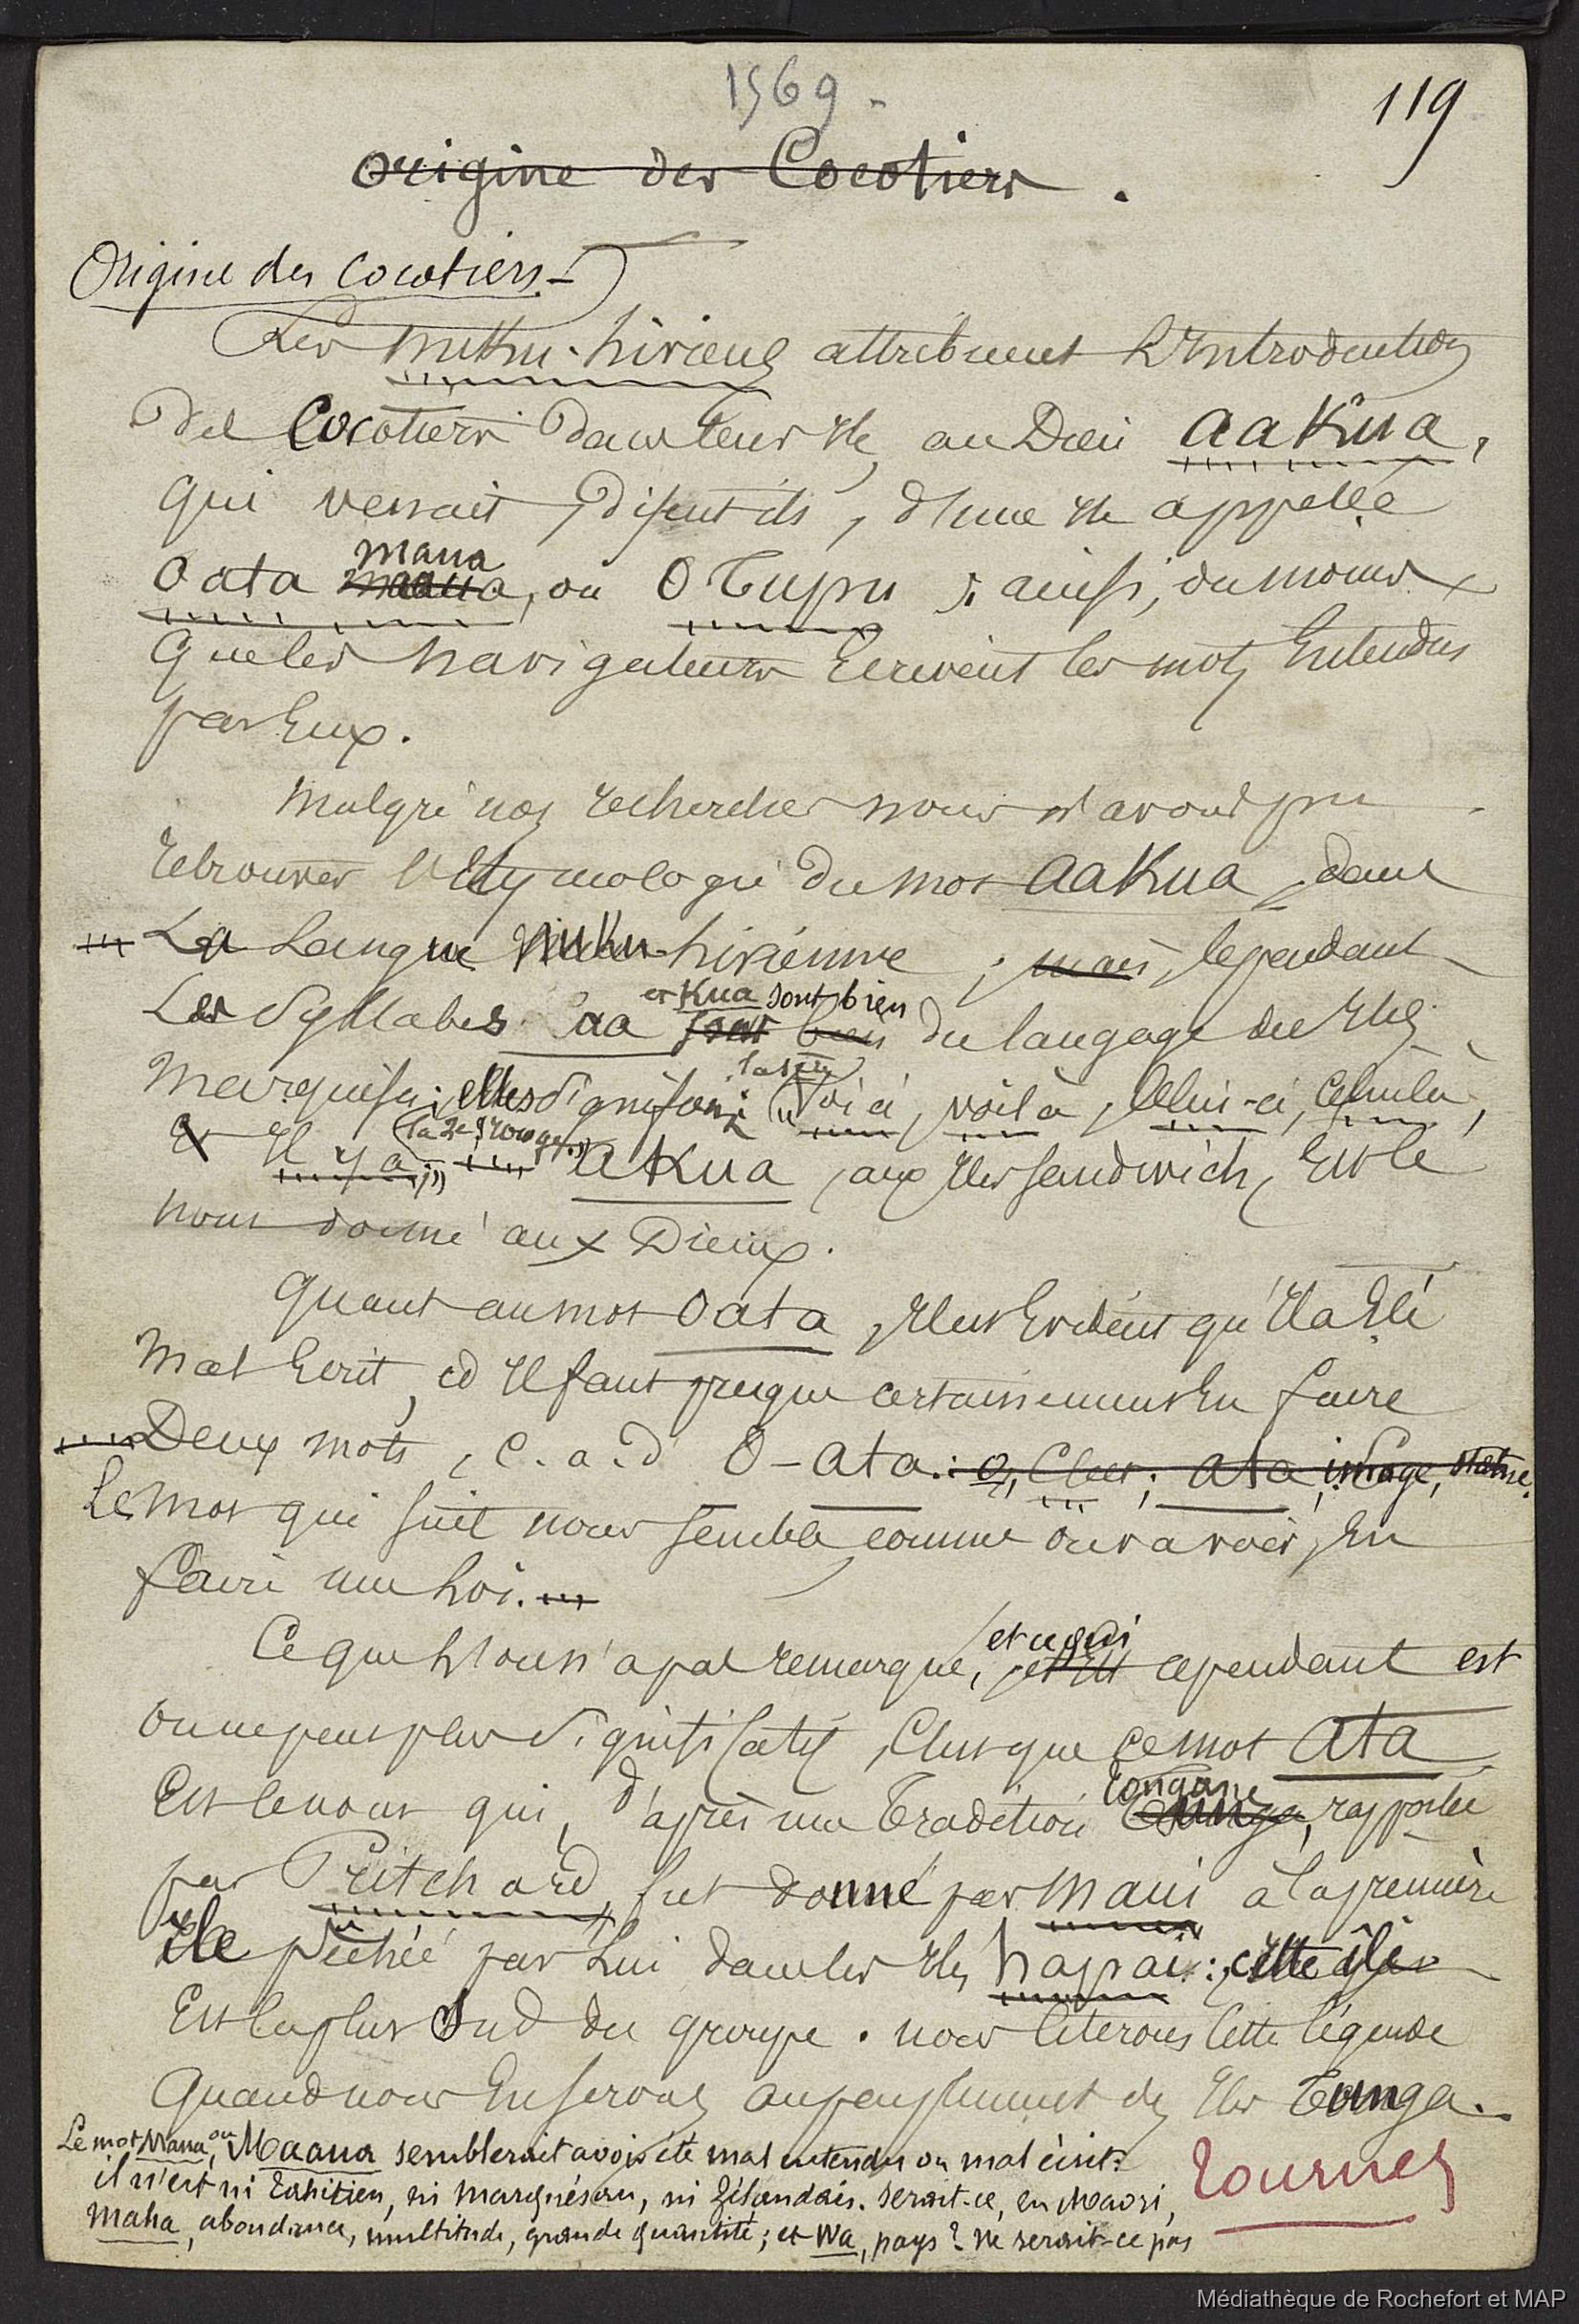 1569.
119
origine des Cocotiers.
Origine des Cocotiers.-
Les nuku-hiviens attribuent l'Introduction
des Cocotiers dans leur île, au Dieu aakua,
qui venait, disent-ils, d'une île appelée
Oata maua maaua, ou O Tupu; ainsi, du moins
que les navigateurs écrivent les mots entendus
par Eux.
Malgré nos recherches nous n'avons pu
retrouver l'Etymologie du mot aakua, dans
La Langue nuku-hivienne; mais, cependant
Les Syllabes aa et Kua sont bien font bien du langage des Iles
Marquises; elles signifient (la 1ere) "Voici, voilà, celui-ci, celui-là,
& Il y a;" (la 2e, rouge.") akua, aux Iles Sandwich, Est le
nom donné aux Dieux.
Quant au mot Oata, Il est Evident qu'Il a Eté
mal Ecrit, et Il faut presque certainement En faire
Deux mots, c.a.d O-ata: O, C'est; ata, image, statue.
Le mot qui suit nous semble, comme devant
faire un hoi.
Ce que l'on n'a pas remarqué, et ce qui cependant est
on ne peut plus significatif, C'est que ce mot ata
Est le nom qui, d'après une Tradition tongane Tunga, rapportée
par Pritchard, fut donné par maui à la première
île pêchée par Lui dans les Iles hapai: cette île
Est la plus Sud du groupe. nous citerons cette légende
Quand nous En serons au peuplement des Iles Tunga.
Le mot Mana, ou Maaua semblerait avoir été mal entendu ou mal écrit:
il n'est ni Tahitien, ni marquésan, ni Zélandais. Serait-ce, en Maori,
maha, abondance, multitude, grande quantité; et Wa, pays? Ne serait-ce pas
Tournez
Médiathèque de Rochefort et MAP